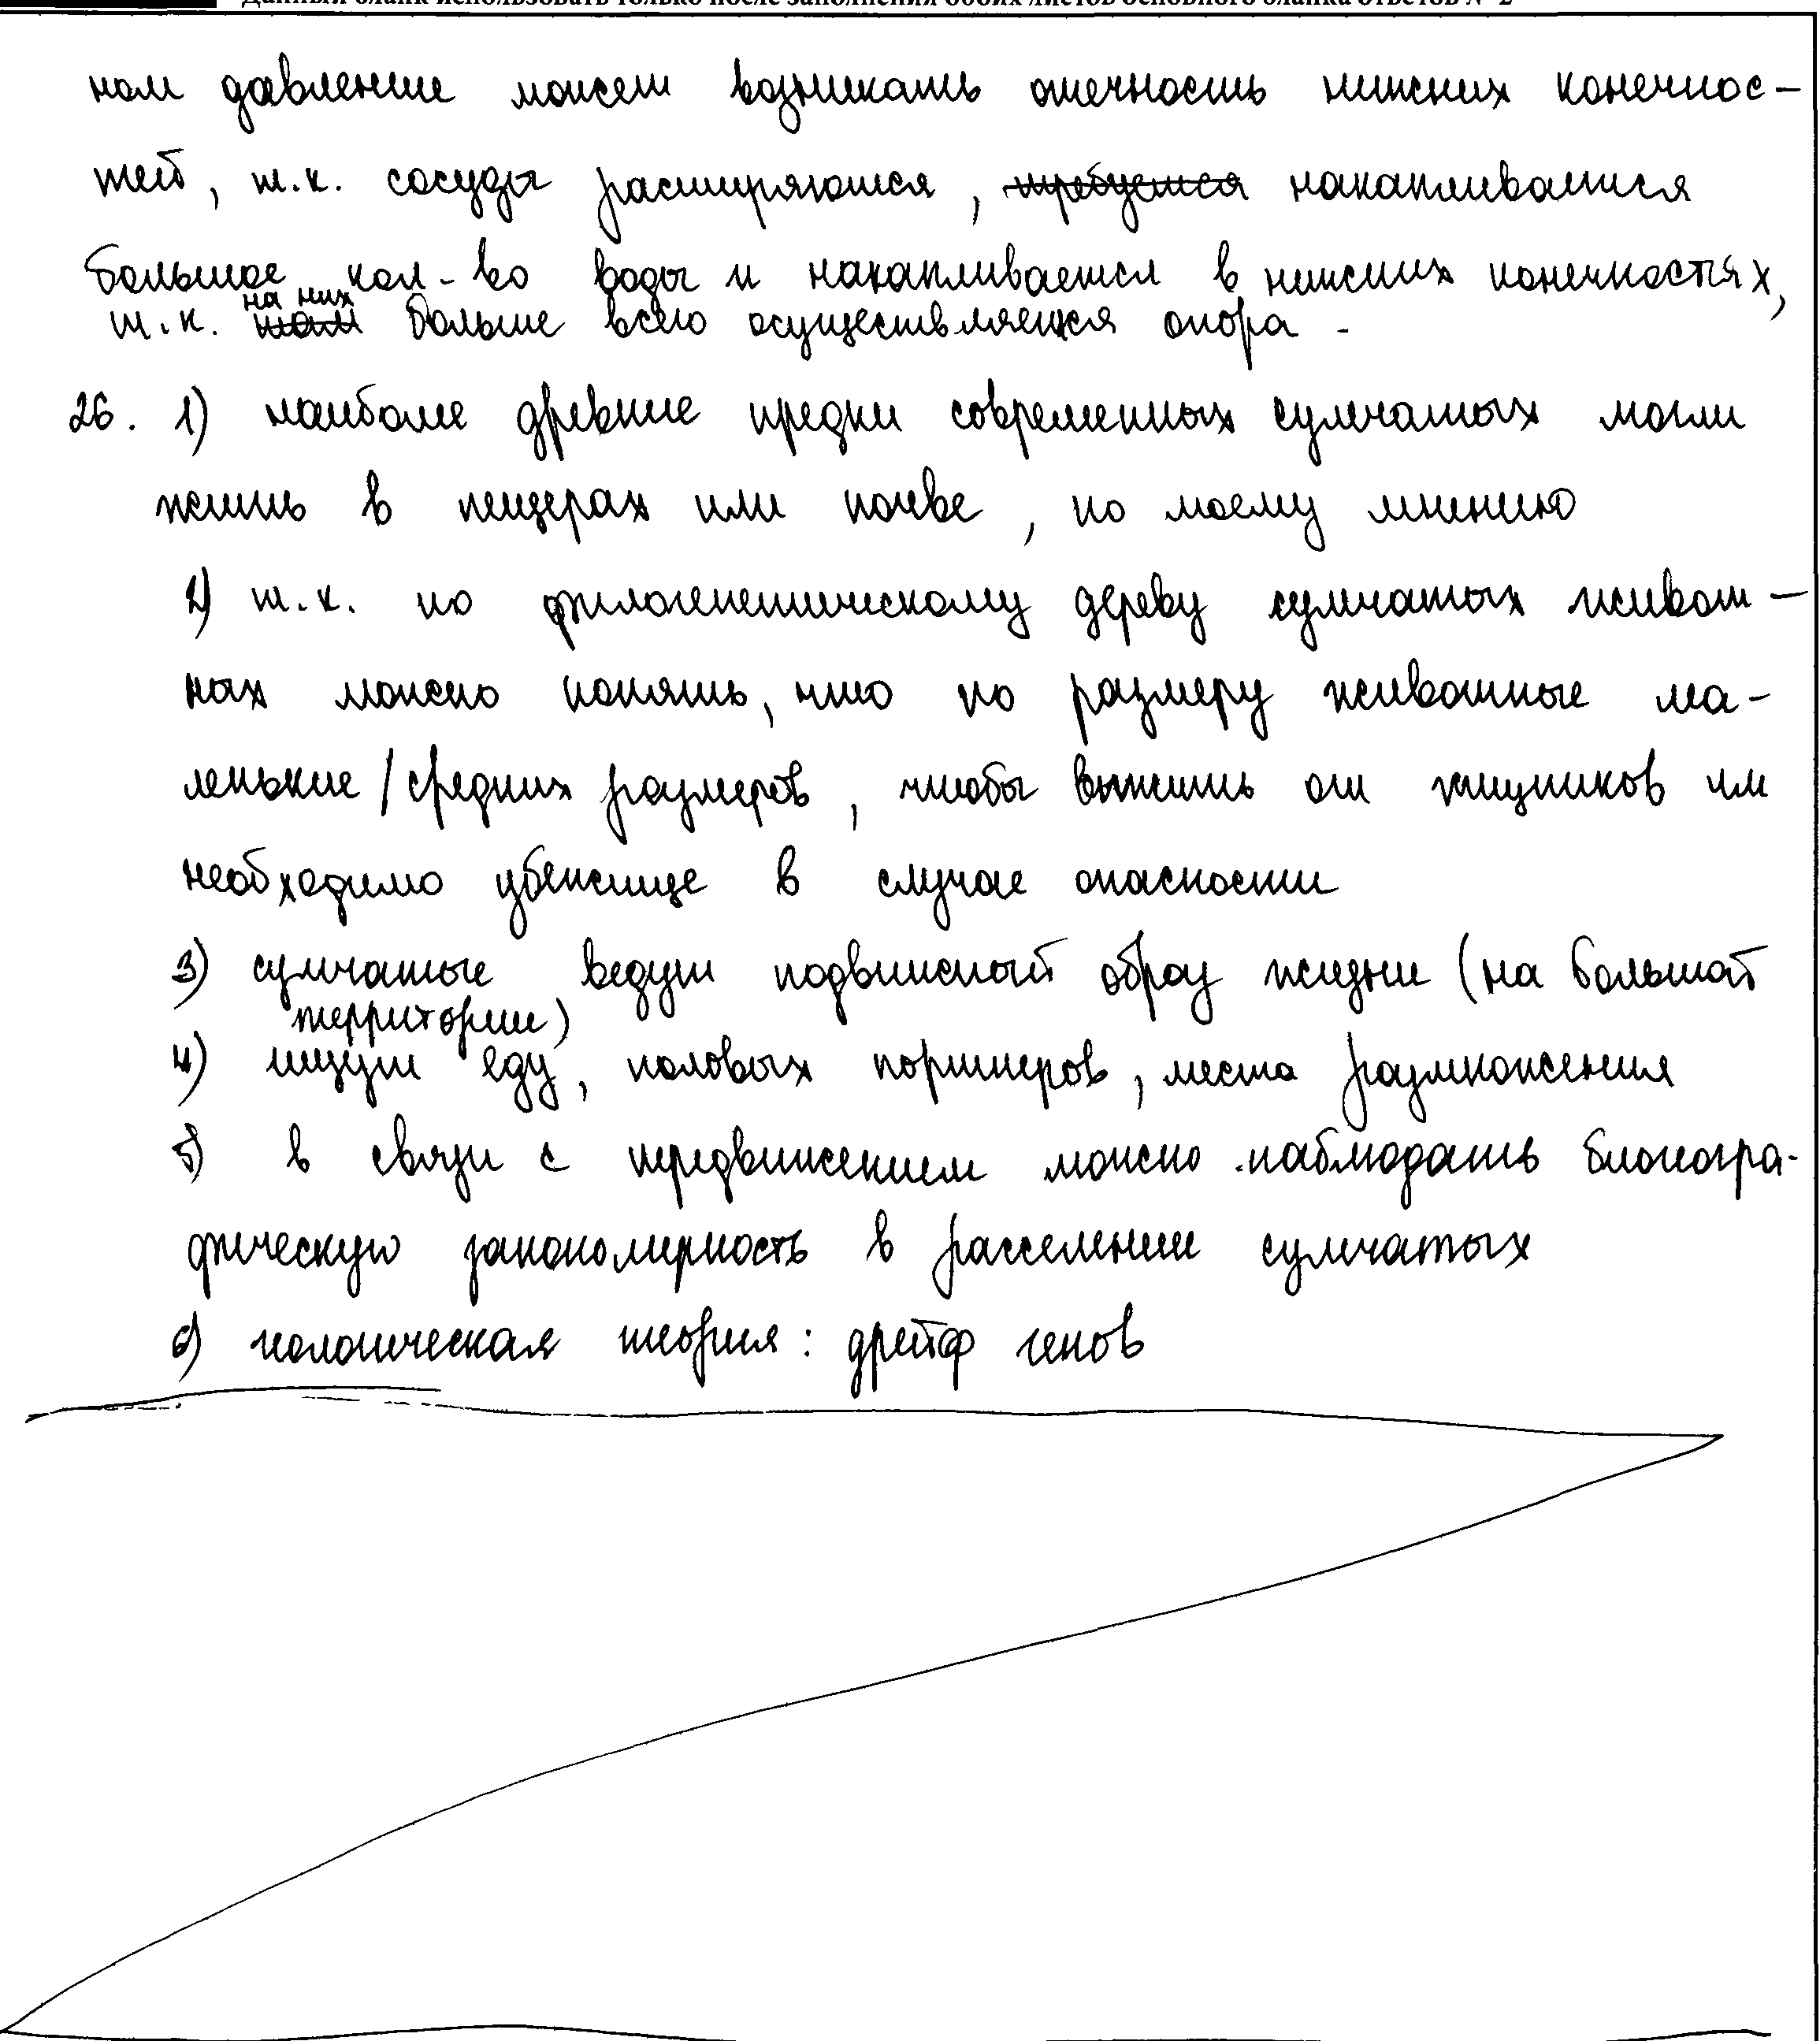 Данный бланк использовать только после заполнения обоих листов основного бланка ответов № 2
ном давление может возникать отечность нижних конечнос-
тей, т.к. сосуды расширяются, ~~требуется~~ накапливается
большое кол-во воды и накапливается в нижних конечностях,
т.к. ~~там~~ на них больше всего осуществляется опора.
26. 1) наиболе древние предки современных сумчатых могли
жить в пещерах или почве, по моему мнению
2) т.к. по филогенетическому дереву сумчатых живот-
ных можно понять, что по размеру животные ма-
ленькие / средних размеров, чтобы выжить от хищников им
необходимо убежище в случае опасности
3) сумчатые ведут подвижный образ жизни (на большой
территории)
4) ищут еду, половых портнеров, места размножения
5) в связи с передвижением можно наблюдать биогеогра-
фическую закономерность в расселении сумчатых
6) геологическая теория: дрейф генов